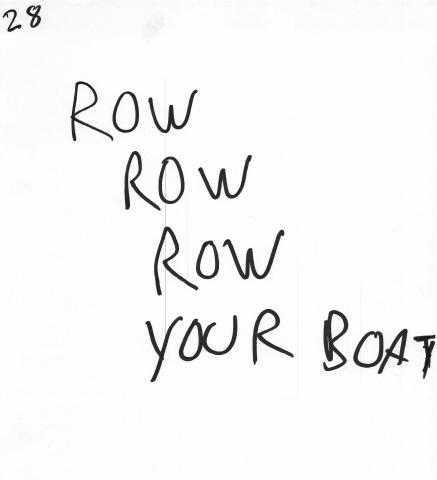 28
ROW
ROW
ROW
YOUR BOAT